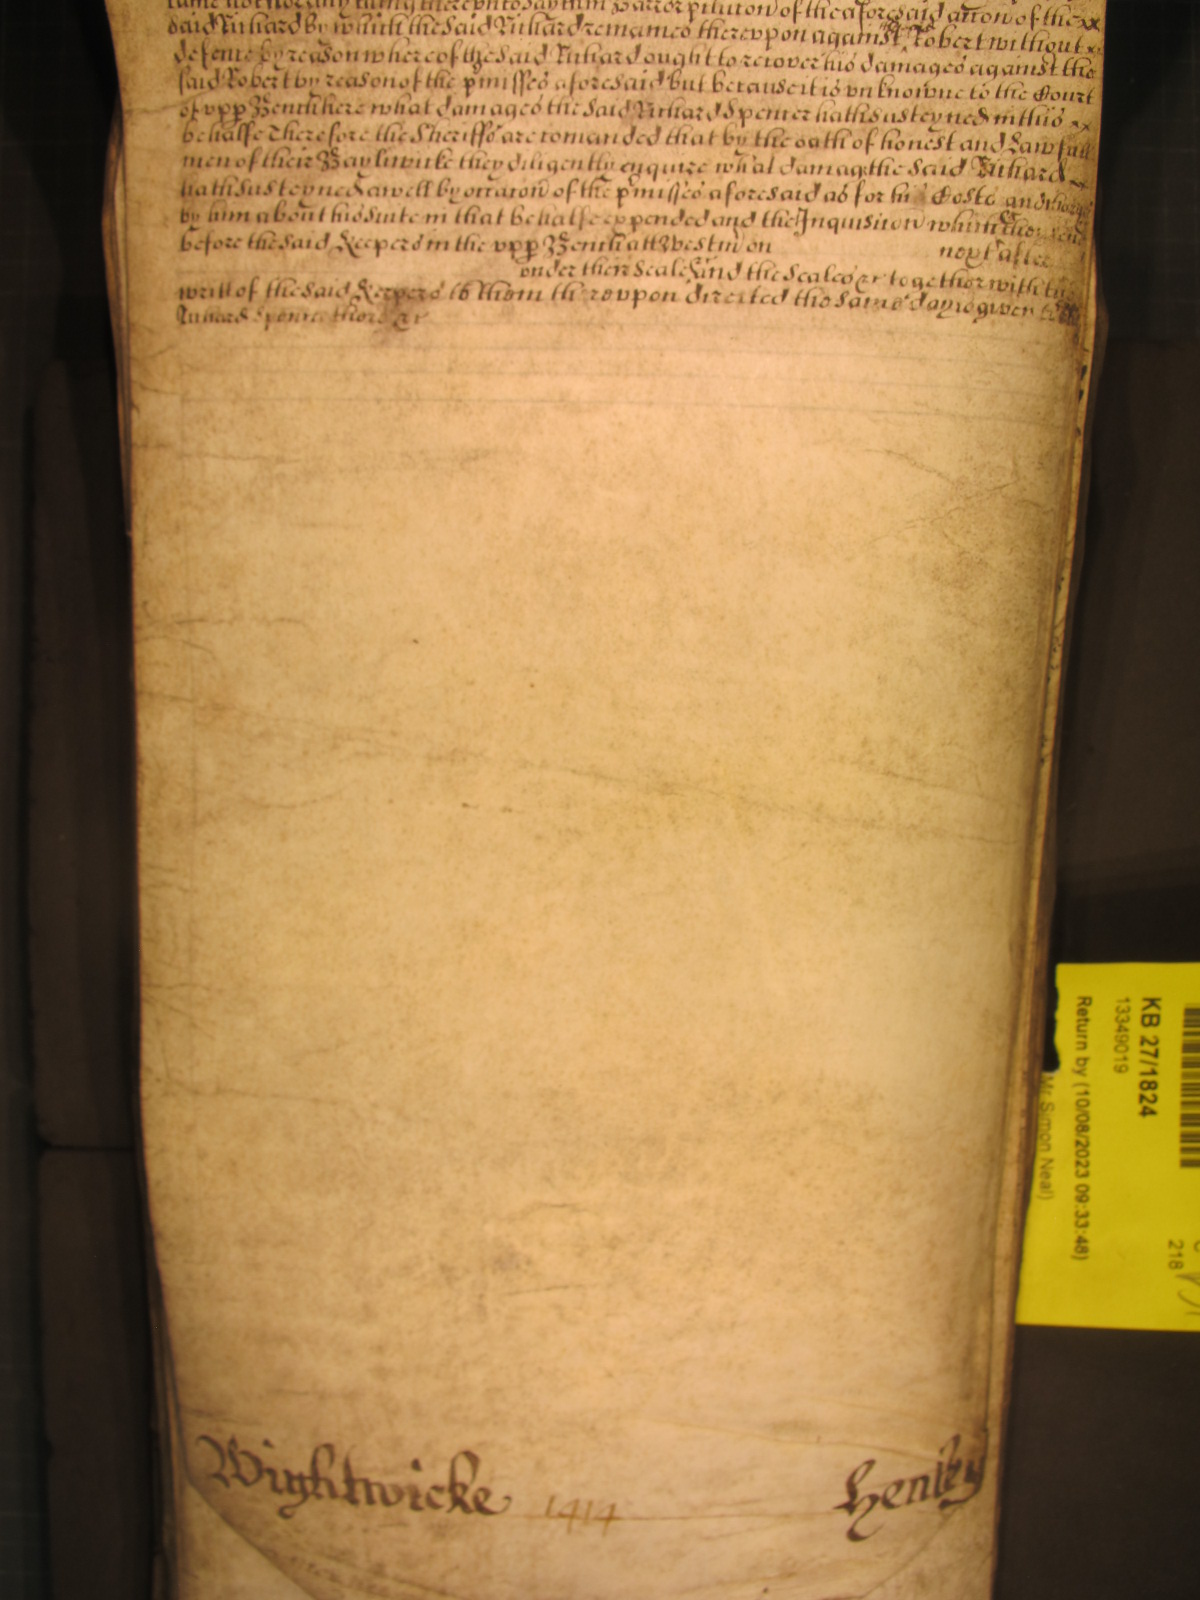 same not nor any thing thereunto say in Barr or p'clusion of the aforesaid accon of the
said Richard By which the said Richard remaines therevpon against the Robert without
defence by reason whereof the said Richard ought to recover his damages against the
said Robert by reason of the p'misses aforesaid But because it is vnknowne to the Court
of vpp Bench here what damages the said Richard Spencer hath susteyned in this
behalfe Therefore the Sheriffs are comanded that by the oath of honest and Lawfull
men of their Baylywicke they diligently enquire what damag the said Richard
hath susteyned aswell by occacon of the p'misses aforesaid as for his Costs and charges
by him about his suite in that behalfe expended and the Inquisicon which they
before the said Keepers in the vpp Bench att Westm on next after
vnder their Seale And the Seales &c together with the
writt of the said Keepers to them therevpon directed the same day is given to
Richard Spencer there &c
Wightwicke 1414 Henley
KB 27/1824
13349019
Return by (10/08/2023 09:33:48)
Mr Simon Neal)
218